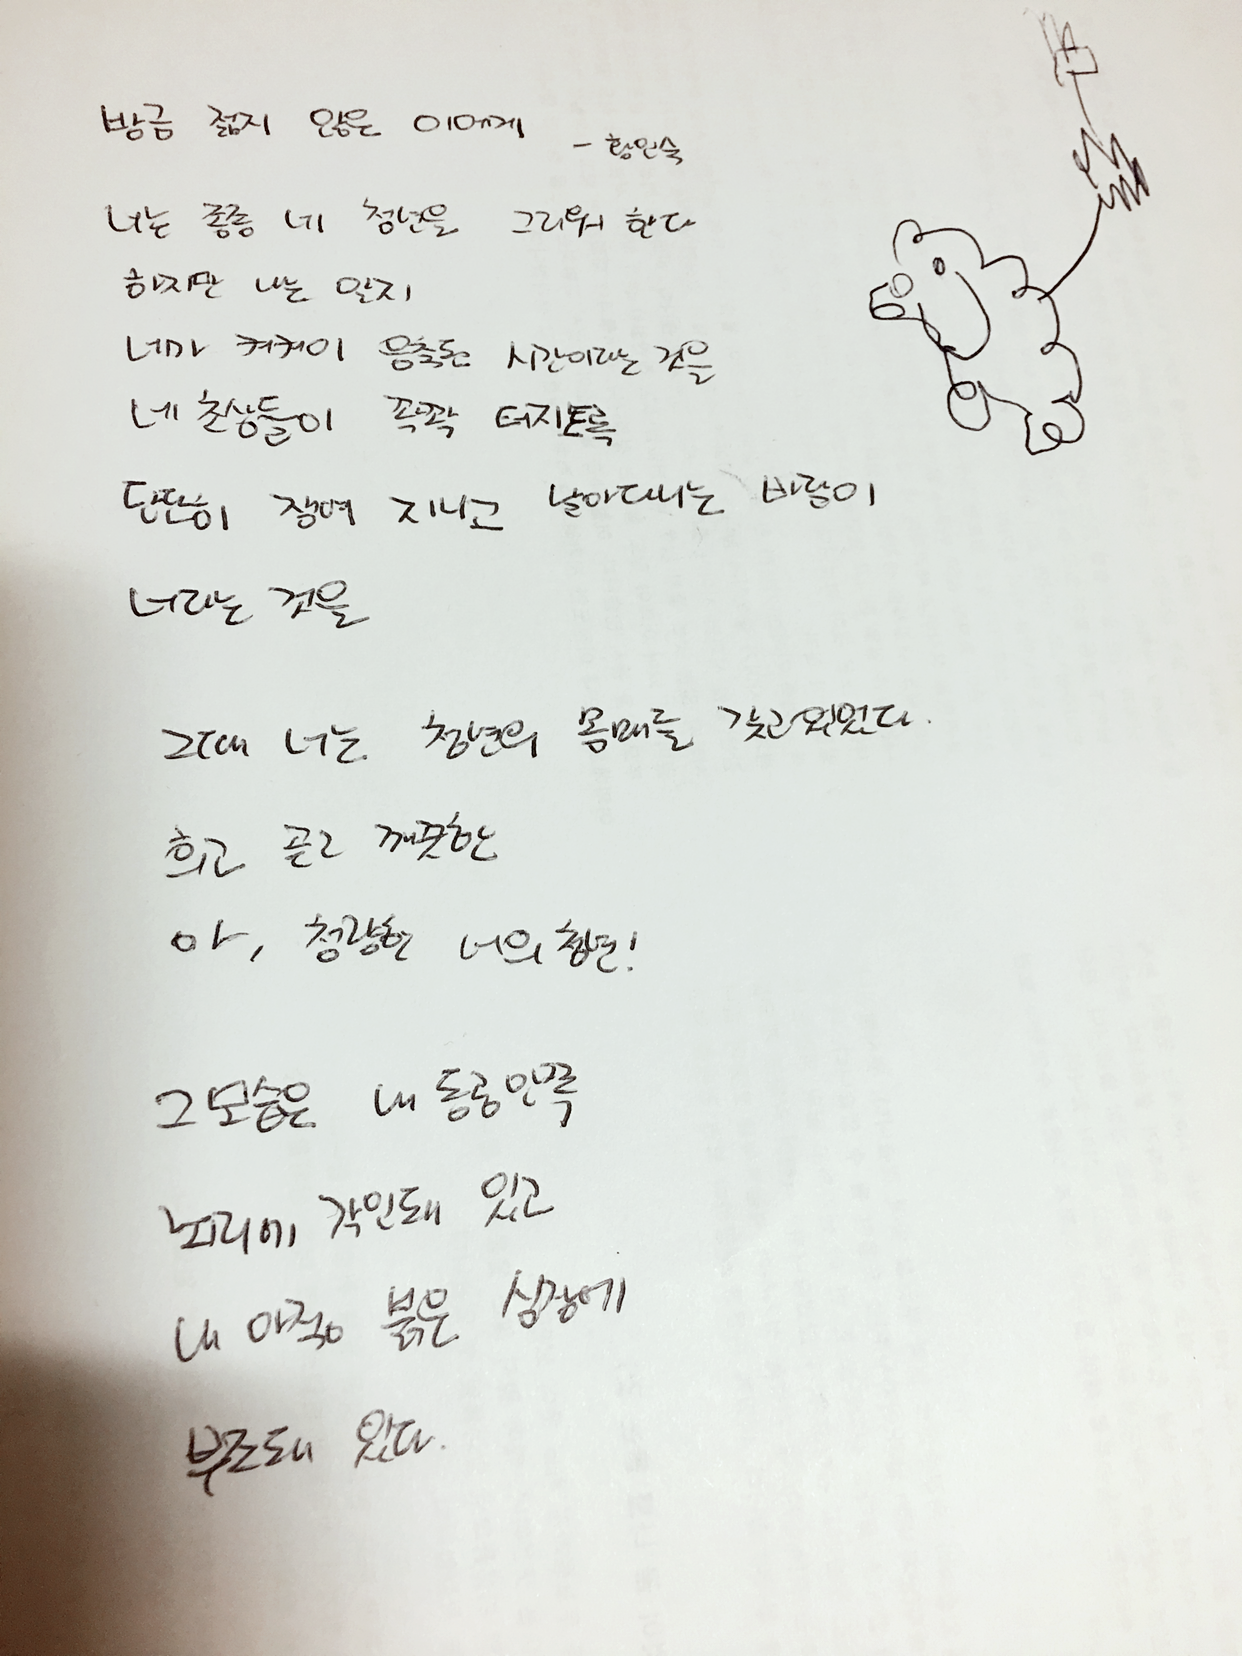 방금 젊지 않은 이에게
- 황인숙
너는 종종 네 청년을 그리워 한다
하지만 나는 알지
네가 켜켜이 응축된 시간이라는 것을
네 초상들이 꽉꽉 터지도록
단단히 쟁여 지니고 날아다니는 바람이
너라는 것을
그때 너는 청년의 몸매를 갖고 있었다.
희고 곧고 깨끗한
아, 청량한 너의 청년!
그 모습은 내 동공 안쪽
뇌리에 각인돼 있고
내 아직 붉은 심장에
부조돼 있다.